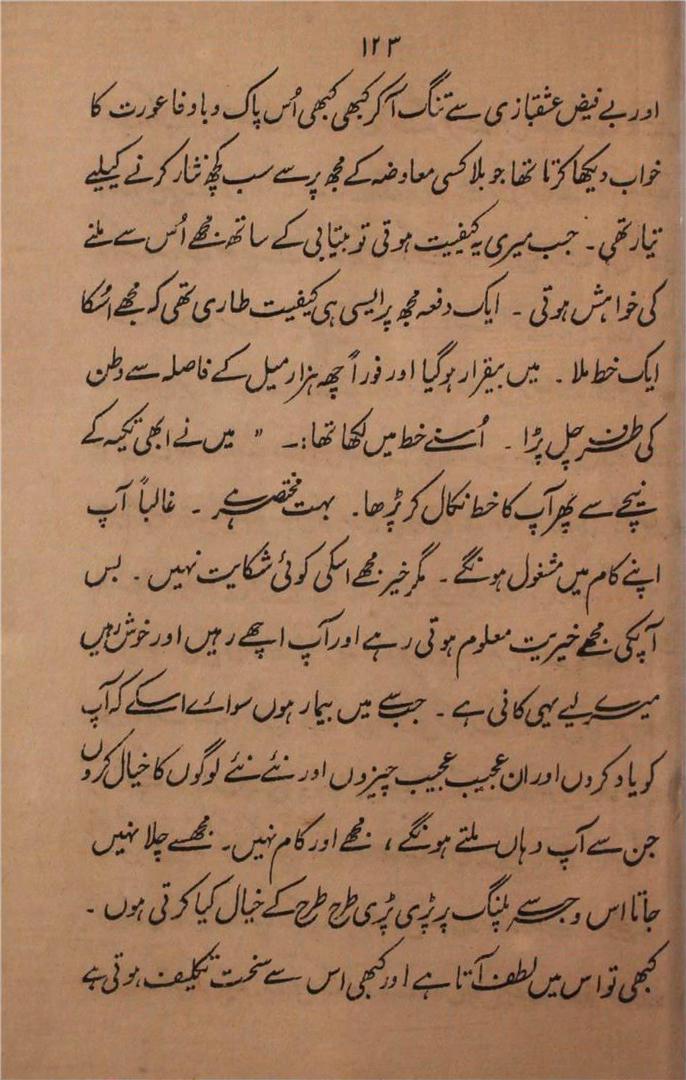 ۱۲۳
اور بے فیض عشقبازی سے تنگ آکر کبھی کبھی اُس پاک و باوفا عورت کا
خواب دیکھا کرتا تھا جو بلا کسی معاوضہ کے مجھ پر سے سب کچھ نثار کرنے کیلئے
تیار تھی ۔ جب میری یہ کیفیت ہوتی تو بیتابی کے ساتھ مجھے اُس سے ملنے
کی خواہش ہوتی ۔ ایک دفعہ مجھ پر ایسی ہی کیفیت طاری تھی کہ مجھے اُسکا
ایک خط ملا ۔ میں بیقرار ہوگیا اور فوراً چھ ہزار میل کے فاصلہ سے وطن
کی طرف چل پڑا ۔ اُسنے خط میں لکھا تھا :۔ " میں نے ابھی تکیہ کے
نیچے سے پھر آپ کا خط نکال کر پڑھا۔ بہت مختصر ہے ۔ غالباً آپ
اپنے کام میں مشغول ہونگے ۔ مگر خیر مجھے اسکی کوئی شکایت نہیں ۔ بس
آپکی مجھے خیریت معلوم ہوتی رہے اور آپ اچھے رہیں اور خوش رہیں
میرے لیے یہی کافی ہے ۔ جب سے میں بیمار ہوں سوائے اسکے کہ آپ
کو یاد کروں اور ان عجیب عجیب چیزوں اور نئے نئے لوگوں کا خیال کروں
جن سے آپ وہاں ملتے ہونگے ، مجھے اور کام نہیں۔ مجھسے چلا نہیں
جاتا اس وجہ سے پلنگ پر پڑی پڑی طرح طرح کے خیال کیا کرتی ہوں ۔
کبھی تو اس میں لطف آتا ہے اور کبھی اس سے سخت تکلیف ہوتی ہے